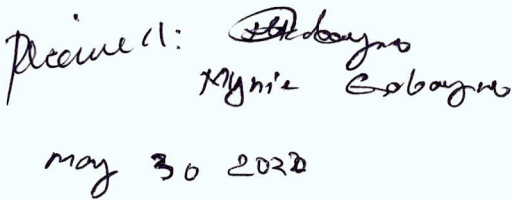 Received:
Mynie Gabayno
May 30 2022